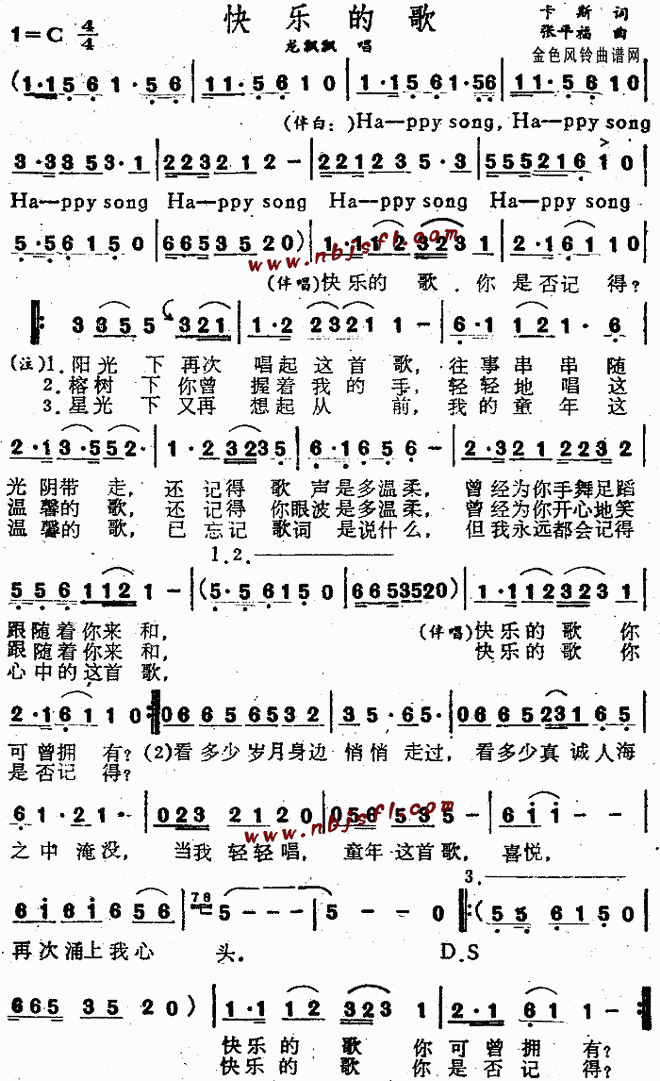 快乐的歌
1=C 4/4
卡斯 词
张平福 曲
龙飘飘 唱
金色风铃曲谱网
(1·156 1·56 | 11·56 10 | 1·156 1·56 | 11·56 10
(伴白:)Ha—ppy song, Ha—ppy song
3·3853·1 | 223212– | 221235·3 | 55521610
Ha—ppy song Ha—ppy song Ha—ppy song Ha—ppy song
5·56150 | 6653520) | 1·112 3231 | 2·16110
www.nbjsfl.com
(伴唱)快乐的歌.你是否记得?
3355 5 321 | 1·2 2321 1– | 6·1 121·6
(注)1.阳光下再次唱起这首歌,往事串串随
2.榕树下你曾握着我的手,轻轻地唱这
3.星光下又再想起从前,我的童年这
2·13·552· | 1·23235 | 6·1656– | 2·321 2232
光阴带走,还记得歌声是多温柔,曾经为你手舞足蹈
温馨的歌,还记得你眼波是多温柔,曾经为你开心地笑
温馨的歌,已忘记歌词是说什么,但我永远都会记得
1.2.
5561121– | (5·56150 | 6653520) | 1·1123231
跟随着你来和,(伴唱)快乐的歌你
跟随着你来和,快乐的歌你
心中的这首歌,
2·16110 :| 06656532 | 35·65· | 0665231 65
可曾拥有?(2)看多少岁月身边悄悄走过,看多少真诚人海
是否记得?
61·21· | 023 2120 | 056 535– | 6ii–
www.nbjsfl.com
之中淹没,当我轻轻唱,童年这首歌,喜悦,
3.
6i6i6656 | 5––– | 5––0 |: (55 6150
再次涌上我心头. D.S
6653520) | 1·112 3231 | 2·1611– :|
快乐的歌你可曾拥有?
快乐的歌你是否记得?